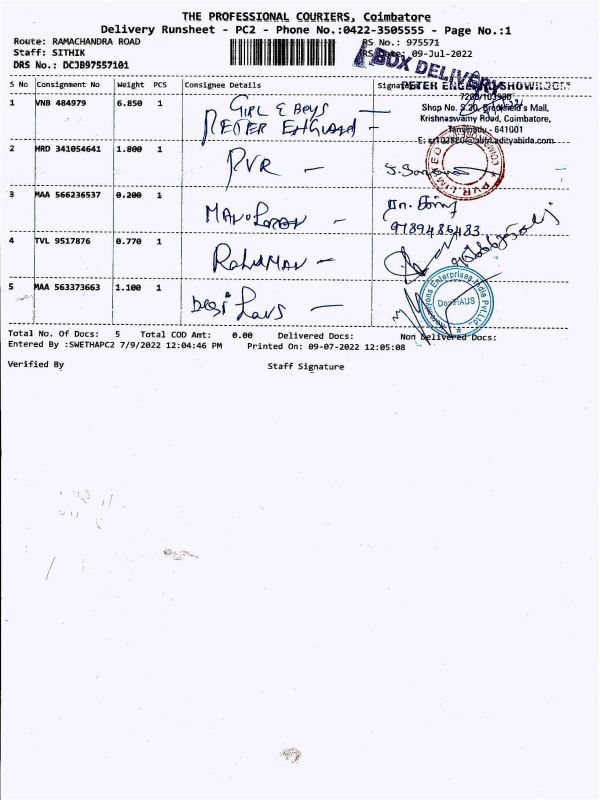 THE PROFESSIONAL COURIERS, Coimbatore
Delivery Runsheet - PC2 - Phone No.:0422-3505555 - Page No.:1
Route: RAMACHANDRA ROAD
RS No.: 975571
Staff: SITHIK
RS Date: 09-Jul-2022
DRS No.: DCJB97557101
BOX DELIVERY
S No Consignment No Weight PCS Consignee Details Signature
PETER ENGLAND SHOWROOM
Shop No. S.20, Brookfield's Mall,
Krishnaswamy Road, Coimbatore,
Tamilnadu - 641001
1 VNB 484979 6.850 1 GIRL & BOYS
PETER ENGLAND
2 HRD 341054641 1.800 1 PVR
PVR LIMITED
3 MAA 566236537 0.200 1
9789485483
4 TVL 9517876 0.770 1 RAHMAN
5 MAA 563373663 1.100 1
Enterprises India Pvt.Ltd.
Total No. Of Docs: 5 Total COD Amt: 0.00 Delivered Docs: Non Delivered Docs:
Entered By :SWETHAPC2 7/9/2022 12:04:46 PM Printed On: 09-07-2022 12:05:08
Verified By Staff Signature